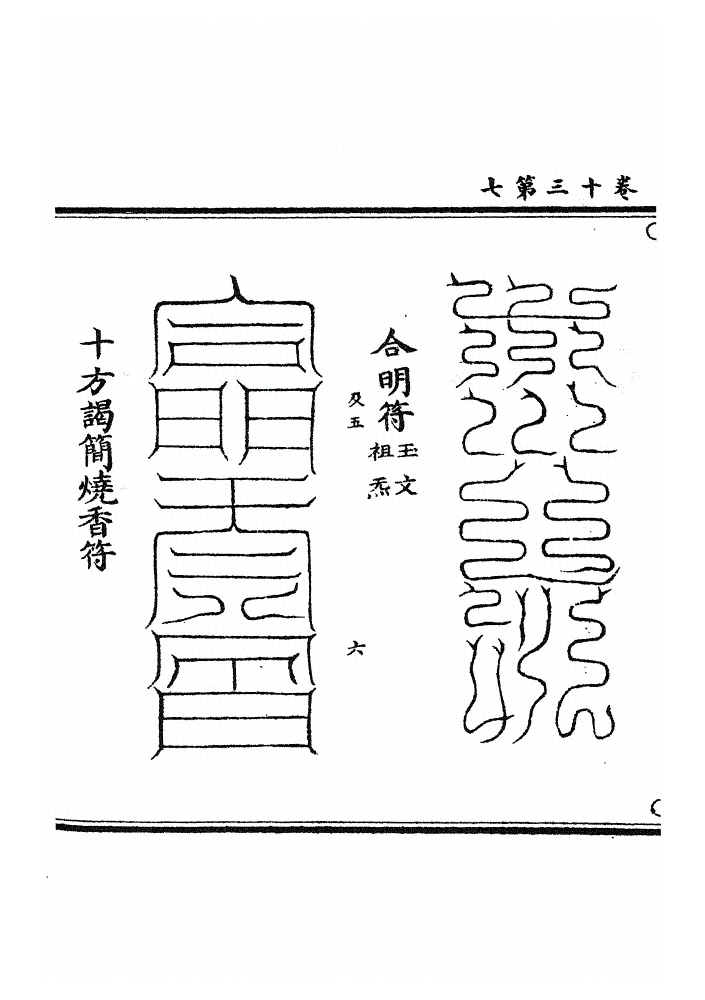 卷十三第七
合明符
玉文
祖炁
及五
六
十方謁簡燒香符